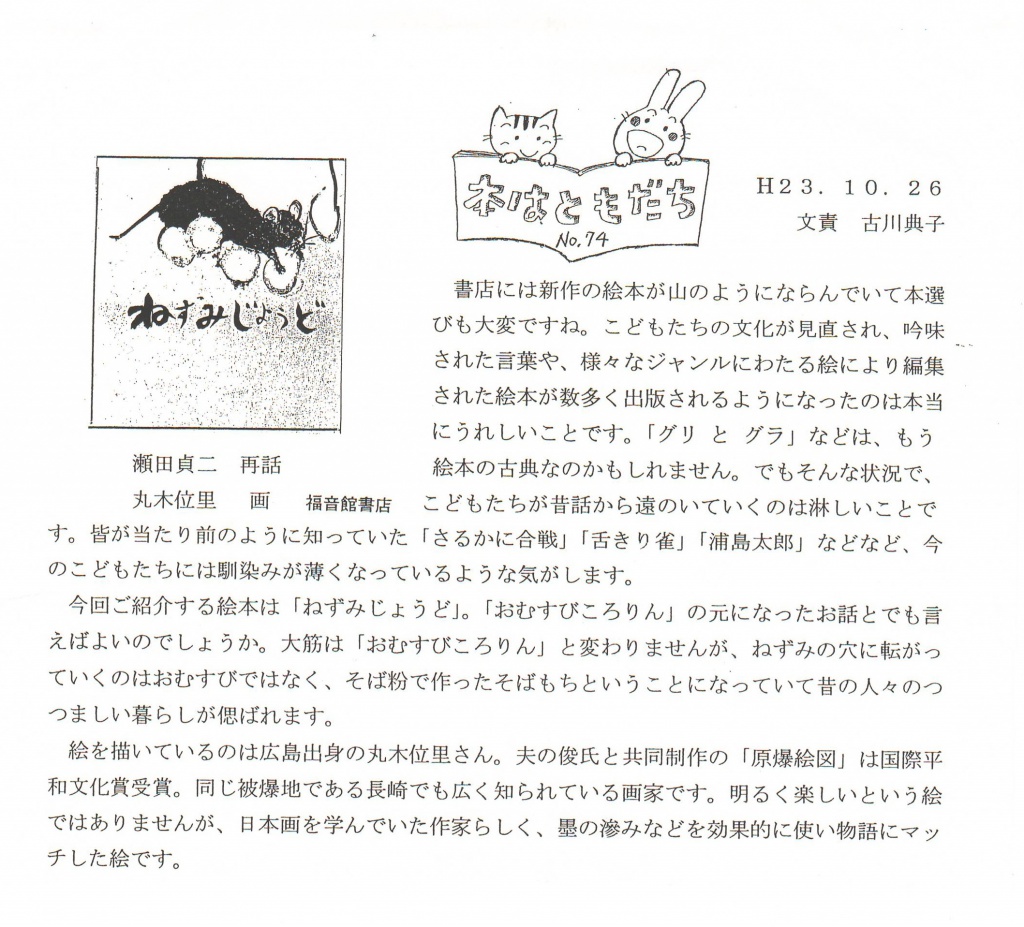 本はともだち
No.74
H23．10．26
文責　古川典子
ねずみじょうど
瀬田貞二　再話
丸木位里　画　福音館書店
書店には新作の絵本が山のようにならんでいて本選
びも大変ですね。こどもたちの文化が見直され、吟味
された言葉や、様々なジャンルにわたる絵により編集
された絵本が数多く出版されるようになったのは本当
にうれしいことです。「グリ と グラ」などは、もう
絵本の古典なのかもしれません。でもそんな状況で、
こどもたちが昔話から遠のいていくのは淋しいことで
す。皆が当たり前のように知っていた「さるかに合戦」「舌きり雀」「浦島太郎」などなど、今
のこどもたちには馴染みが薄くなっているような気がします。
今回ご紹介する絵本は「ねずみじょうど」。「おむすびころりん」の元になったお話とでも言
えばよいのでしょうか。大筋は「おむすびころりん」と変わりませんが、ねずみの穴に転がっ
ていくのはおむすびではなく、そば粉で作ったそばもちということになっていて昔の人々のつ
つましい暮らしが偲ばれます。
絵を描いているのは広島出身の丸木位里さん。夫の俊氏と共同制作の「原爆絵図」は国際平
和文化賞受賞。同じ被爆地である長崎でも広く知られている画家です。明るく楽しいという絵
ではありませんが、日本画を学んでいた作家らしく、墨の滲みなどを効果的に使い物語にマッ
チした絵です。